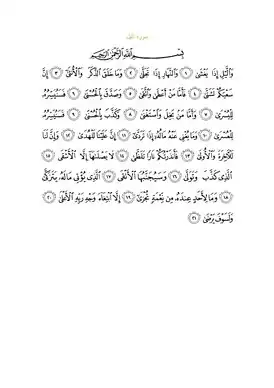 سورة الليل
بِسْمِ اللَّهِ الرَّحْمَٰنِ الرَّحِيمِ
وَاللَّيْلِ إِذَا يَغْشَىٰ ١ وَالنَّهَارِ إِذَا تَجَلَّىٰ ٢ وَمَا خَلَقَ الذَّكَرَ وَالْأُنثَىٰ ٣ إِنَّ
سَعْيَكُمْ لَشَتَّىٰ ٤ فَأَمَّا مَنْ أَعْطَىٰ وَاتَّقَىٰ ٥ وَصَدَّقَ بِالْحُسْنَىٰ ٦ فَسَنُيَسِّرُهُ
لِلْيُسْرَىٰ ٧ وَأَمَّا مَنْ بَخِلَ وَاسْتَغْنَىٰ ٨ وَكَذَّبَ بِالْحُسْنَىٰ ٩ فَسَنُيَسِّرُهُ
لِلْعُسْرَىٰ ١٠ وَمَا يُغْنِي عَنْهُ مَالُهُ إِذَا تَرَدَّىٰ ١١ إِنَّ عَلَيْنَا لَلْهُدَىٰ ١٢ وَإِنَّ لَنَا
لَلْآخِرَةَ وَالْأُولَىٰ ١٣ فَأَنذَرْتُكُمْ نَارًا تَلَظَّىٰ ١٤ لَا يَصْلَاهَا إِلَّا الْأَشْقَى ١٥
الَّذِي كَذَّبَ وَتَوَلَّىٰ ١٦ وَسَيُجَنَّبُهَا الْأَتْقَى ١٧ الَّذِي يُؤْتِي مَالَهُ يَتَزَكَّىٰ
١٨ وَمَا لِأَحَدٍ عِندَهُ مِن نِّعْمَةٍ تُجْزَىٰ ١٩ إِلَّا ابْتِغَاءَ وَجْهِ رَبِّهِ الْأَعْلَىٰ ٢٠
وَلَسَوْفَ يَرْضَىٰ ٢١